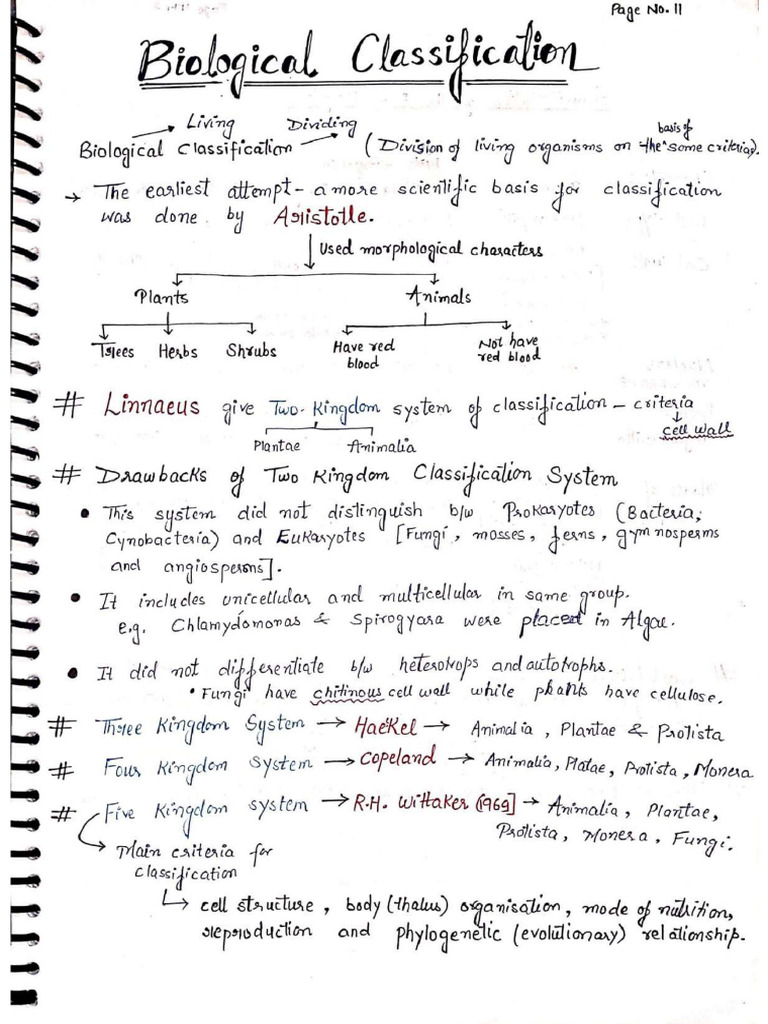 Page No. 11
Biological Classification
Living Dividing
Biological Classification (Division of living organisms on the basis of some criterias).
→ The earliest attempt - a more scientific basis for classification
was done by Aristotle.
Used morphological characters
Plants Animals
Trees Herbs Shrubs Have red blood Not have red blood
# Linnaeus give Two-Kingdom system of classification - criteria
Plantae Animalia cell wall
# Drawbacks of Two Kingdom Classification System
• This system did not distinguish b/w Prokaryotes (Bacteria,
Cynobacteria) and Eukaryotes [Fungi, mosses, ferns, gymnosperms
and angiosperms].
• It includes unicellular and multicellular in same group.
e.g. Chlamydomonas & Spirogyara were placed in Algae.
• It did not differentiate b/w heterotrops and autotrophs.
• Fungi have chitinous cell wall while plants have cellulose.
# Three Kingdom System → Haeckel → Animalia, Plantae & Protista
# Four Kingdom System → Copeland → Animalia, Platae, Protista, Monera
# Five Kingdom system → R.H. Wittaker (1969] → Animalia, Plantae,
Protista, Monera, Fungi.
→ Main criteria for
classification
→ cell structure, body (thalus) organisation, mode of nutrition,
reproduction and phylogenetic (evolutionary) relationship.